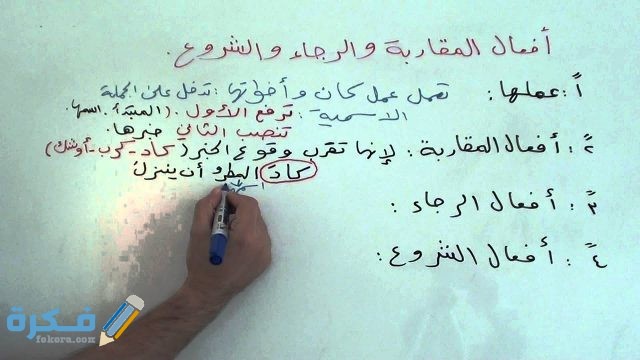 أفعال المقاربة والرجاء والشروع.
أ : عملها : تعمل عمل كان وأخواتها : تدخل على الجملة
الاسمية : ترفع الأول. (المبتدأ. اسمها.
تنصب الثاني خبرها.
٢ : أفعال المقاربة : لإنها تقرب وقوع الخبر (كاد - كرب - أوشك)
كاد المطر أن ينزل
اسمها
٣ : أفعال الرجاء :
٤ : أفعال الشروع :
فكرة
fekera.com